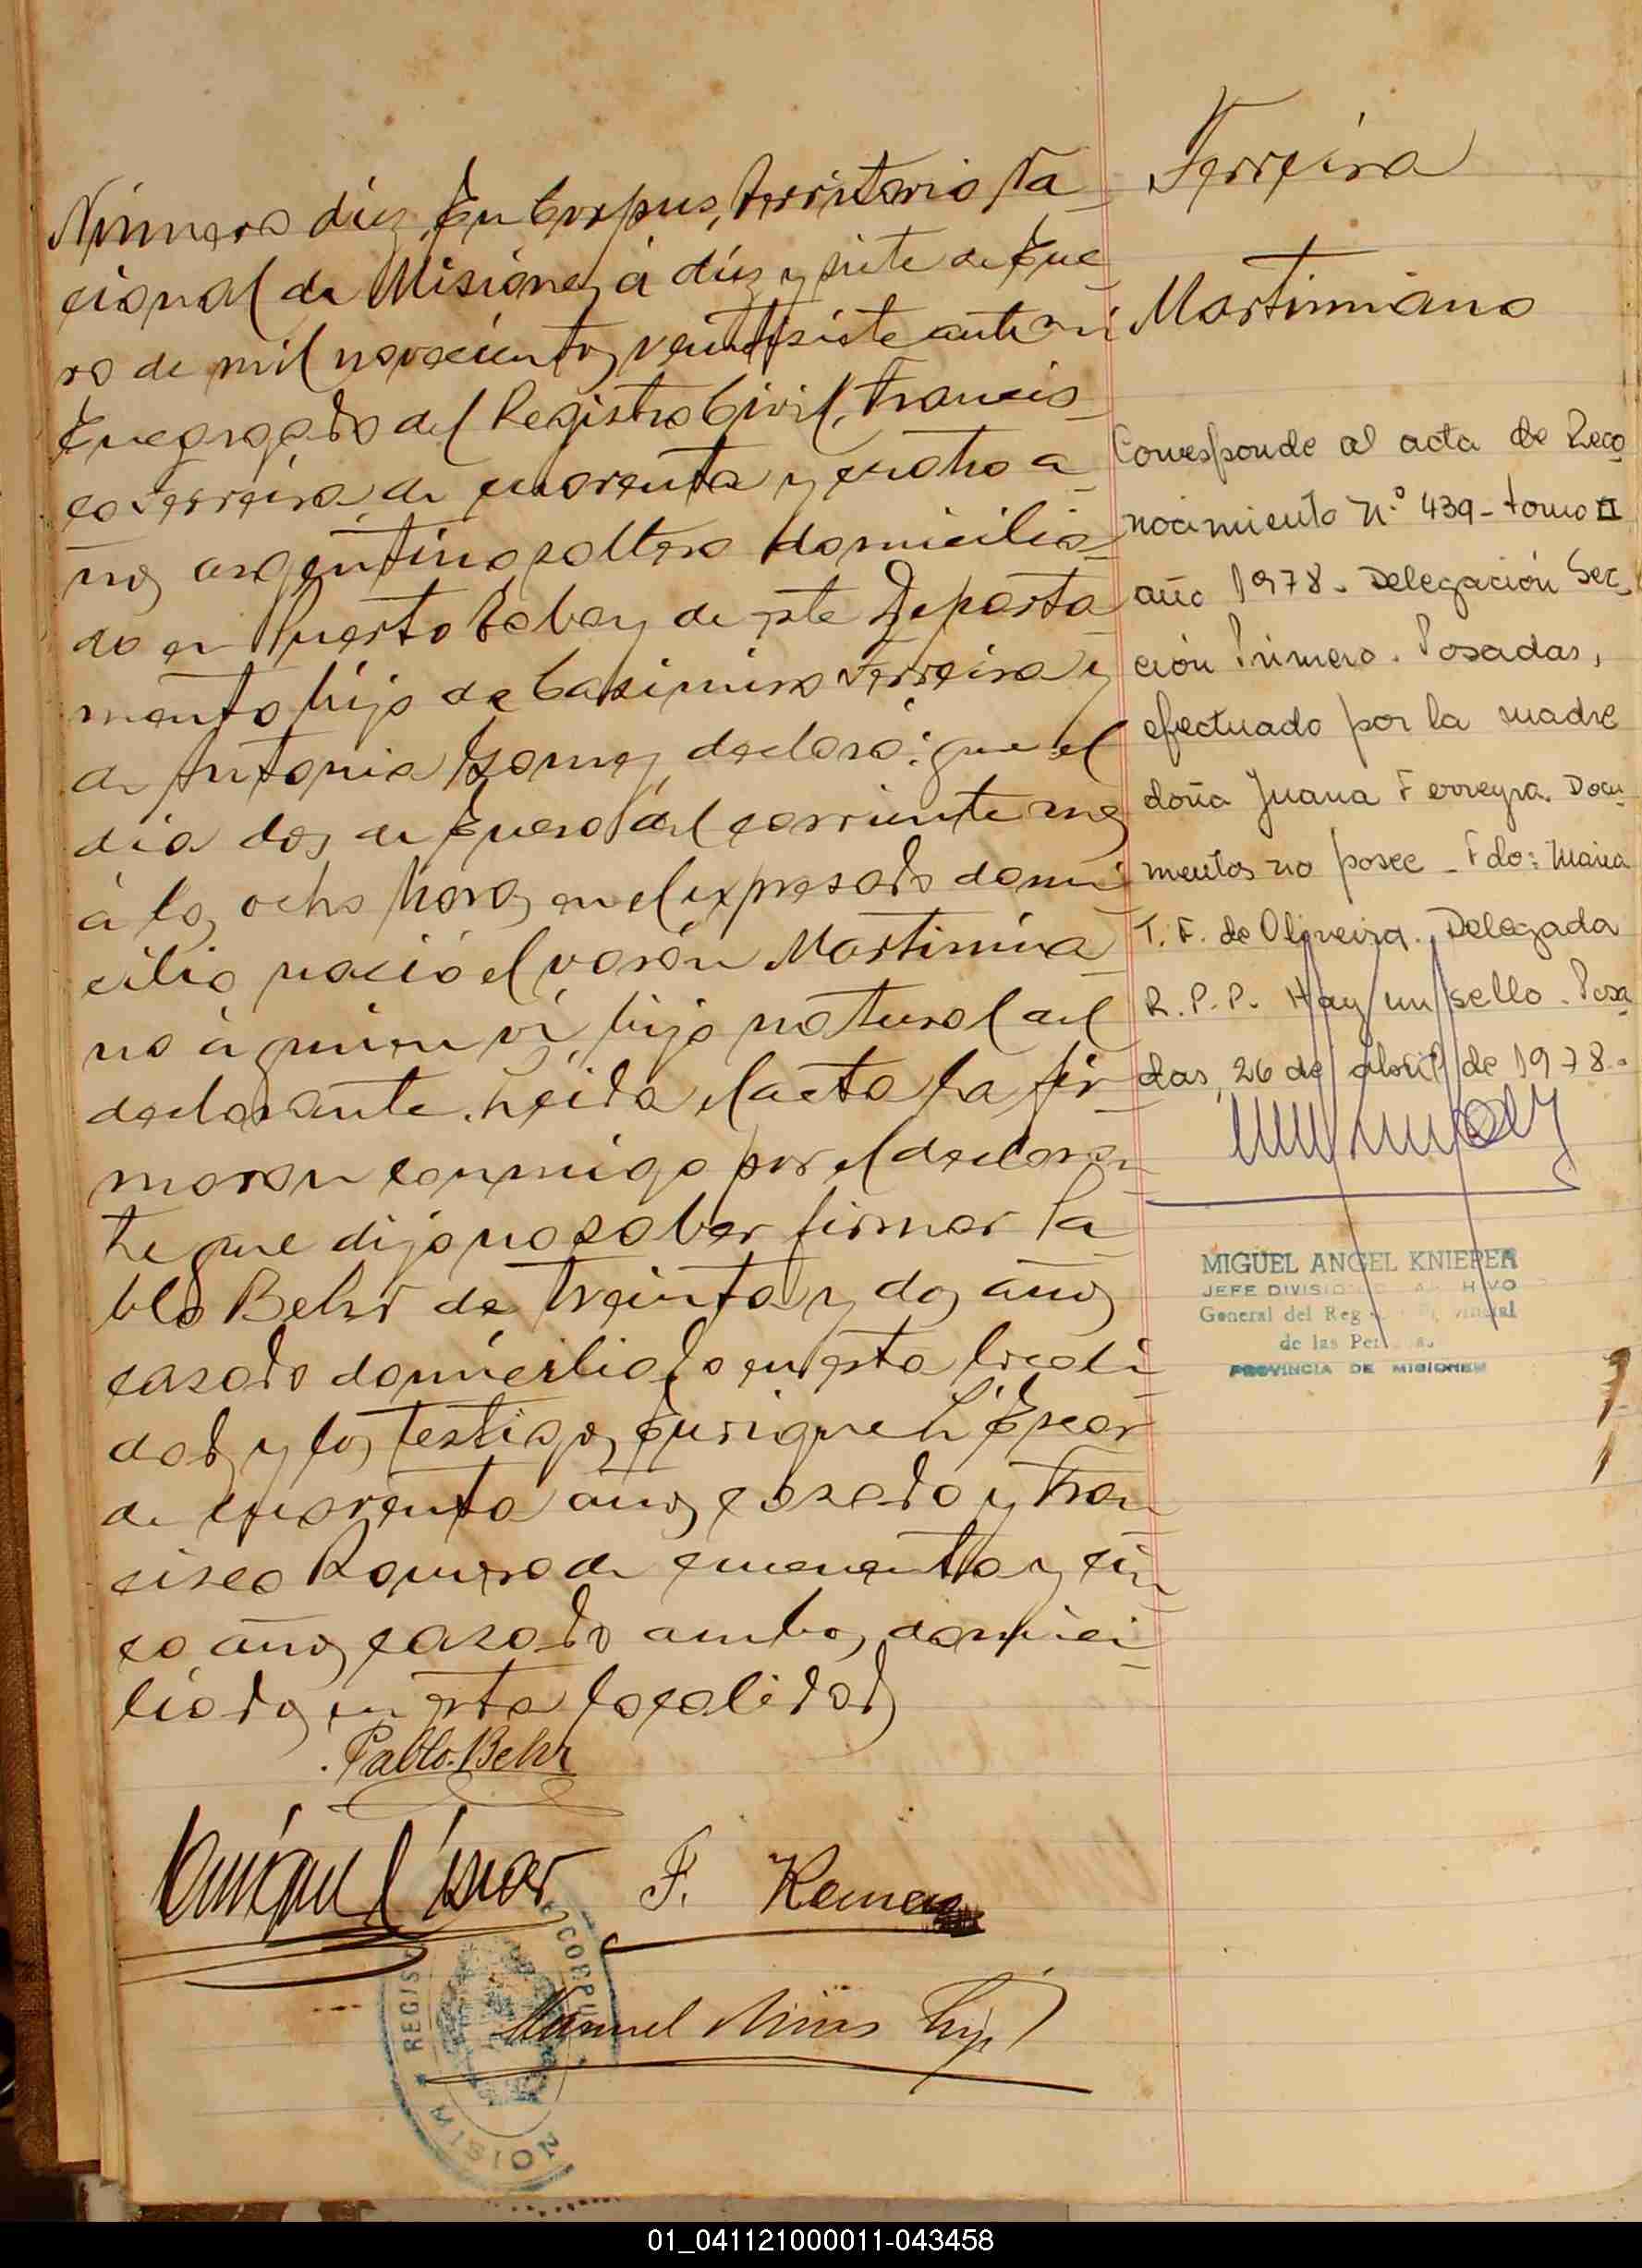 Número diez. En Corpus, Territorio Na-
cional de Misiones, á diez y siete de Ene-
ro de mil novecientos veintisiete ante mi
Encargado del Registro Civil, Francis-
co Ferreira de cuarenta y cuatro a-
ños argentino soltero domicilia-
do en Puerto de este Departa-
mento hijo de Casimiro Ferreira y
de Antonia Gomez declaró: que el
dia dos de Enero del corriente mes
á las ocho horas en el expresado domi-
cilio nació el varón Martimia-
no á quien vi hijo natural del
declarante. Leida el acta la fir-
maron conmigo por el declaran-
te que dijo no saber firmar Pa-
blo Behr de treinta y dos años
casado domiciliado en esta locali-
dad y los testigos Enrique L'Escar
de cuarenta años casado y Fran-
cisco Romero de cincuenta y cin-
co años casado ambos domici-
liados en esta localidad
Pablo Behr
Enrique L'Escar F. Romero
Manuel hijo
REGIS CORPU
MISION
Ferreira
Martimiano
Corresponde al acta de Reco-
nocimiento N.º 439 - tomo II
año 1978. Delegación Sec-
ción Primera. Posadas,
efectuado por la madre
doña Juana Ferreyra. Docu-
mentos no posee - Fdo: Maria
T. F. de Oliveira. Delegada
R. P. P. Hay un sello. Posa-
das, 26 de abril de 1978.-
MIGUEL ANGEL KNIEPER
JEFE DIVISION ARCHIVO
General del Reg Provincial
de las Personas
PROVINCIA DE MISIONES
01_041121000011-043458